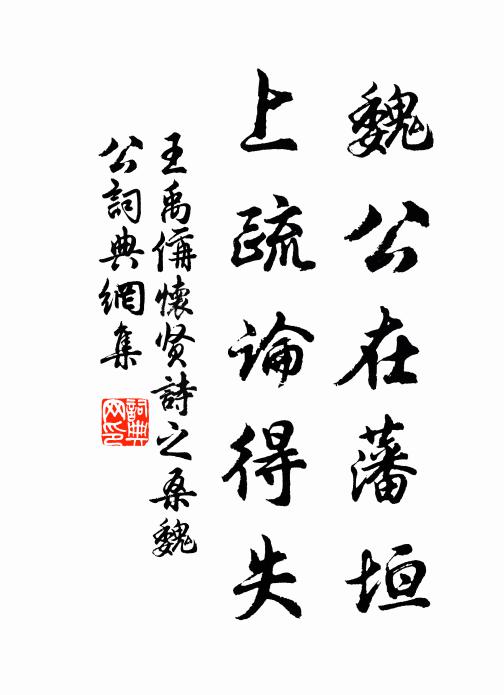 魏公在藩垣
上疏论得失
王禹偁懷贤詩之桑魏
公詞典網集
詞典网印